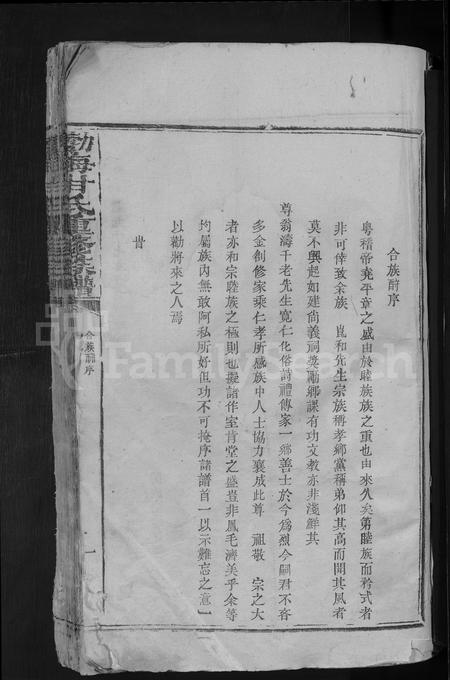 合族酧序
粵稽帝堯平章之盛由於睦族族之重也由來久矣第睦族而矜式者
非可倖致余族崑和先生宗族稱孝鄉黨稱弟仰其高而聞其風者
莫不興起如建尚義祠獎勵鄉課有功文教亦非淺鮮其
尊翁濤千老先生寬仁化俗詩禮傳家一鄉善士於今為烈今嗣君不吝
多金創修家乘仁孝所感族中人士協力襄成此尊祖敬宗之大
者亦和宗睦族之極則也擬諸作室肯堂之盛豈非鳳毛濟美乎余等
均屬族內無敢阿私所好但功不可掩序諸譜首一以示難忘之意一
以勸將來之人焉
旹
渤海甘氏重修族譜
合族酧序
一
FamilySearch